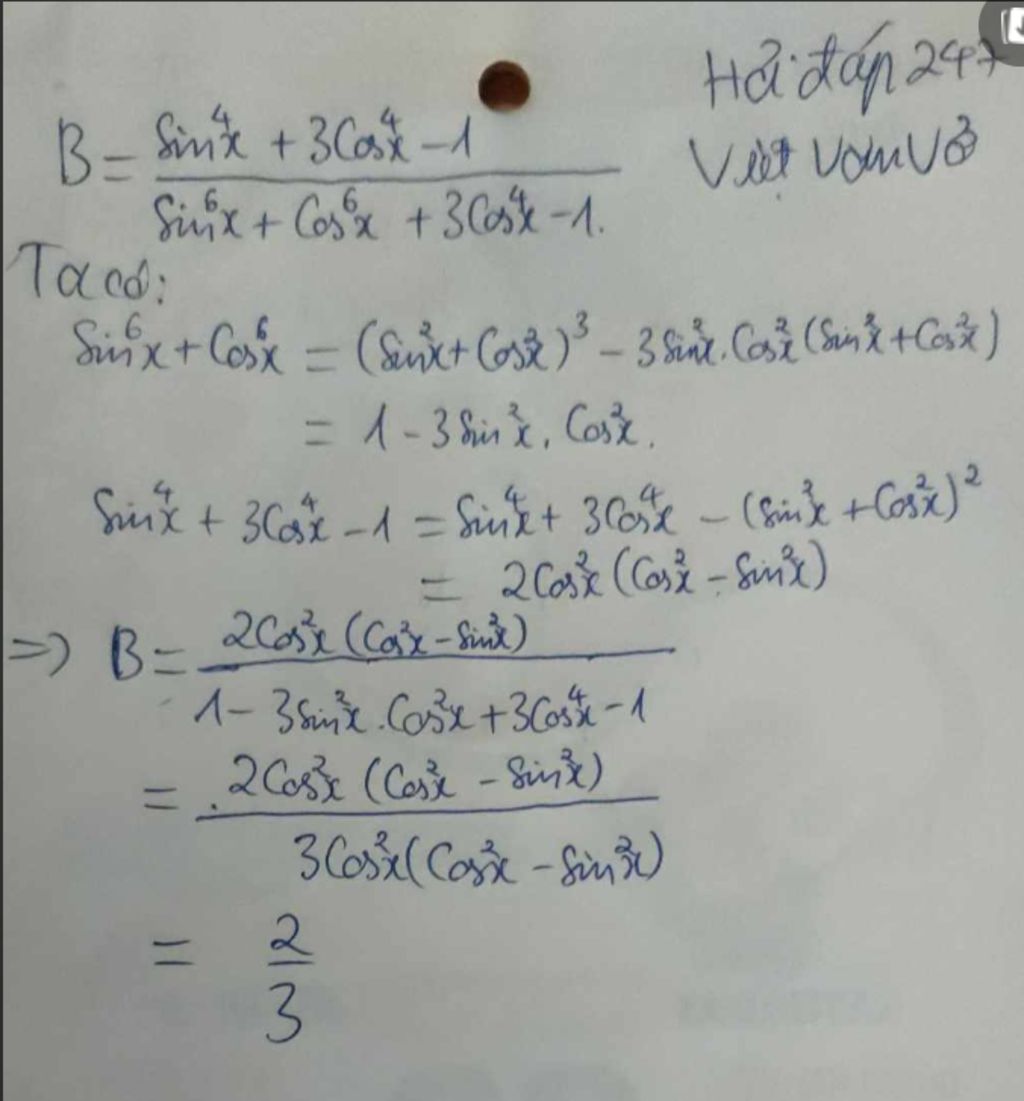 Hỏi đáp 247
Viết Vẩn Vơ
B = (sin⁴x + 3cos⁴x - 1) / (sin⁶x + cos⁶x + 3cos⁴x - 1).
Ta có:
sin⁶x + cos⁶x = (sin²x + cos²x)³ - 3sin²x.cos²x (sin²x + cos²x)
= 1 - 3sin²x . cos²x.
sin⁴x + 3cos⁴x - 1 = sin⁴x + 3cos⁴x - (sin²x + cos²x)²
= 2cos²x (cos²x - sin²x)
=> B = 2cos²x (cos²x - sin²x) / (1 - 3sin²x . cos²x + 3cos⁴x - 1)
= 2cos²x (cos²x - sin²x) / 3cos²x(cos²x - sin²x)
= 2/3